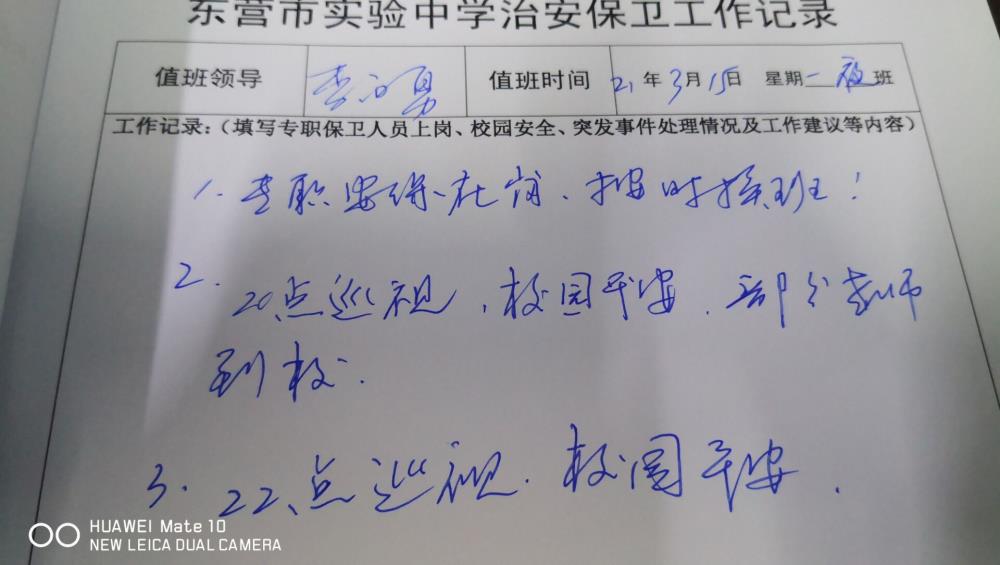 东营市实验中学治安保卫工作记录
值班领导 李 勇 值班时间 21年3月15日 星期一夜班
工作记录:(填写专职保卫人员上岗、校园安全、突发事件处理情况及工作建议等内容)
1. 专职安保在岗、按时换班!
2. 20点巡视,校园平安.部分教师
到校.
3. 22点巡视.校园平安.
HUAWEI Mate 10
NEW LEICA DUAL CAMERA